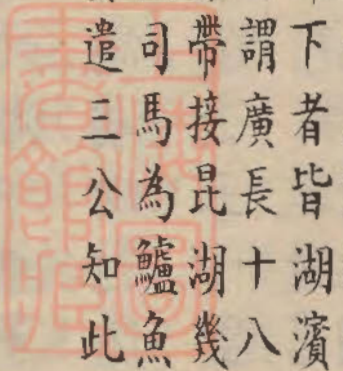 下者皆湖濱
謂廣長十八
帶接昆湖幾
司馬為鱸魚
遣三公知此